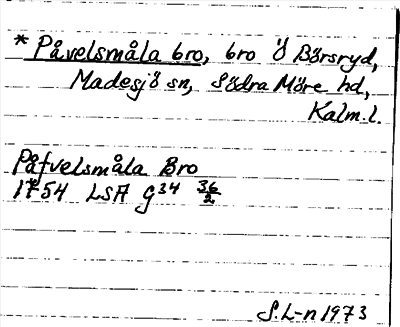 * Påvelsmåla bro, bro Ö Börsryd,
Madesjö sn, Södra Möre hd,
Kalm.l.
Påfvelsmåla Bro
1754 LSA G34 36/2
S.L-n 1973